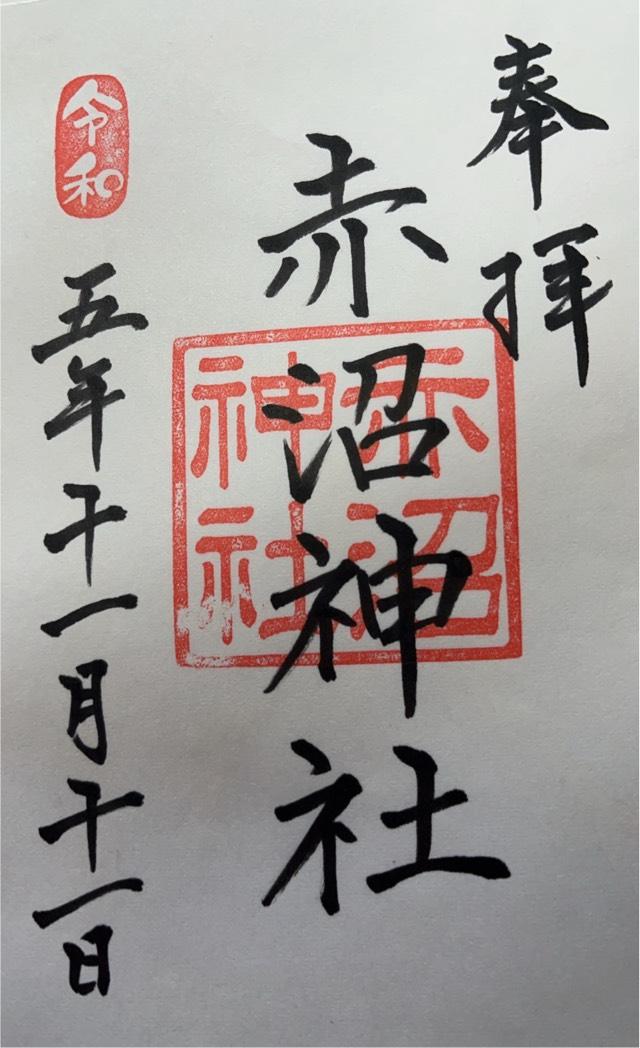 奉拝
赤沼神社
赤沼神社
令和
五年十一月十一日